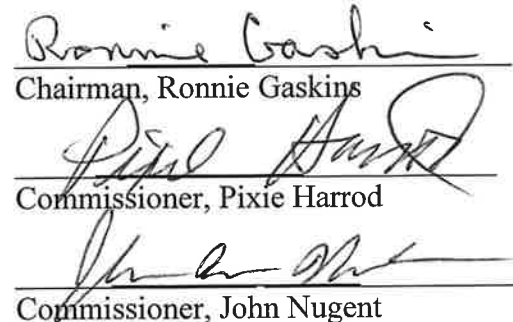 Ronnie Gaskins
Chairman, Ronnie Gaskins
Pixie Harrod
Commissioner, Pixie Harrod
Commissioner, John Nugent